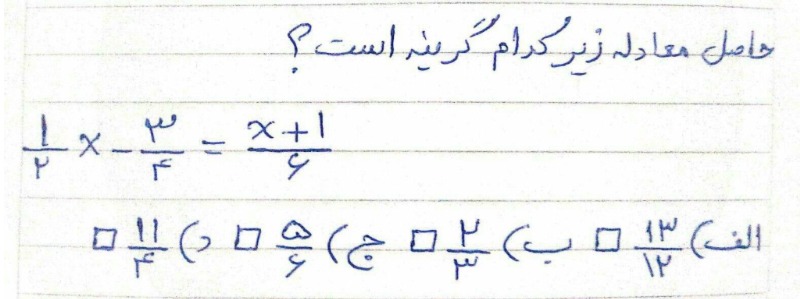 حاصل معادله زیر کدام گزینه است؟
۱/۲ x - ۳/۴ = (x+۱)/۶
الف) ۱۳/۱۲ □ ب) ۲/۳ □ ج) ۵/۶ □ د) ۱۱/۴ □